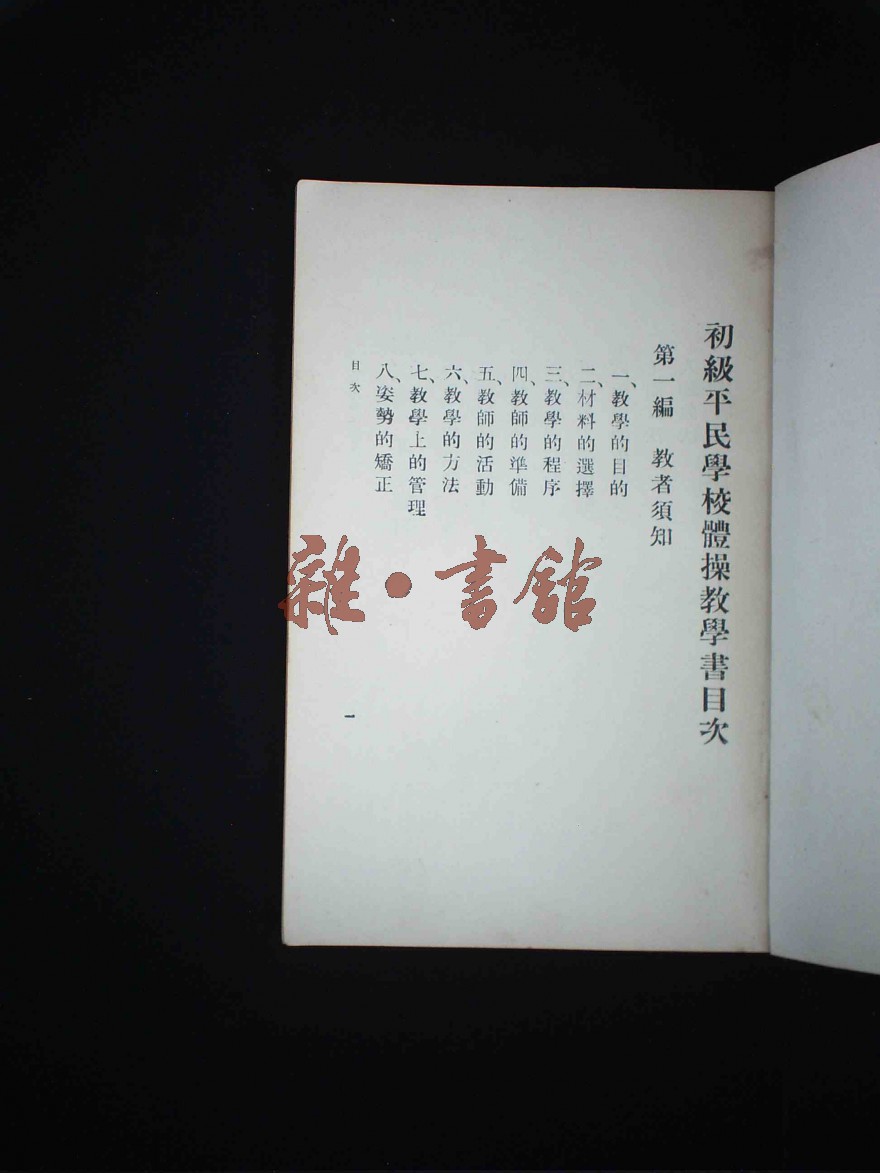 初級平民學校體操教學書目次
第一編　教者須知
一、教學的目的
二、材料的選擇
三、教學的程序
四、教師的準備
五、教師的活動
六、教學的方法
七、教學上的管理
八、姿勢的矯正
目次
一
雜·書館